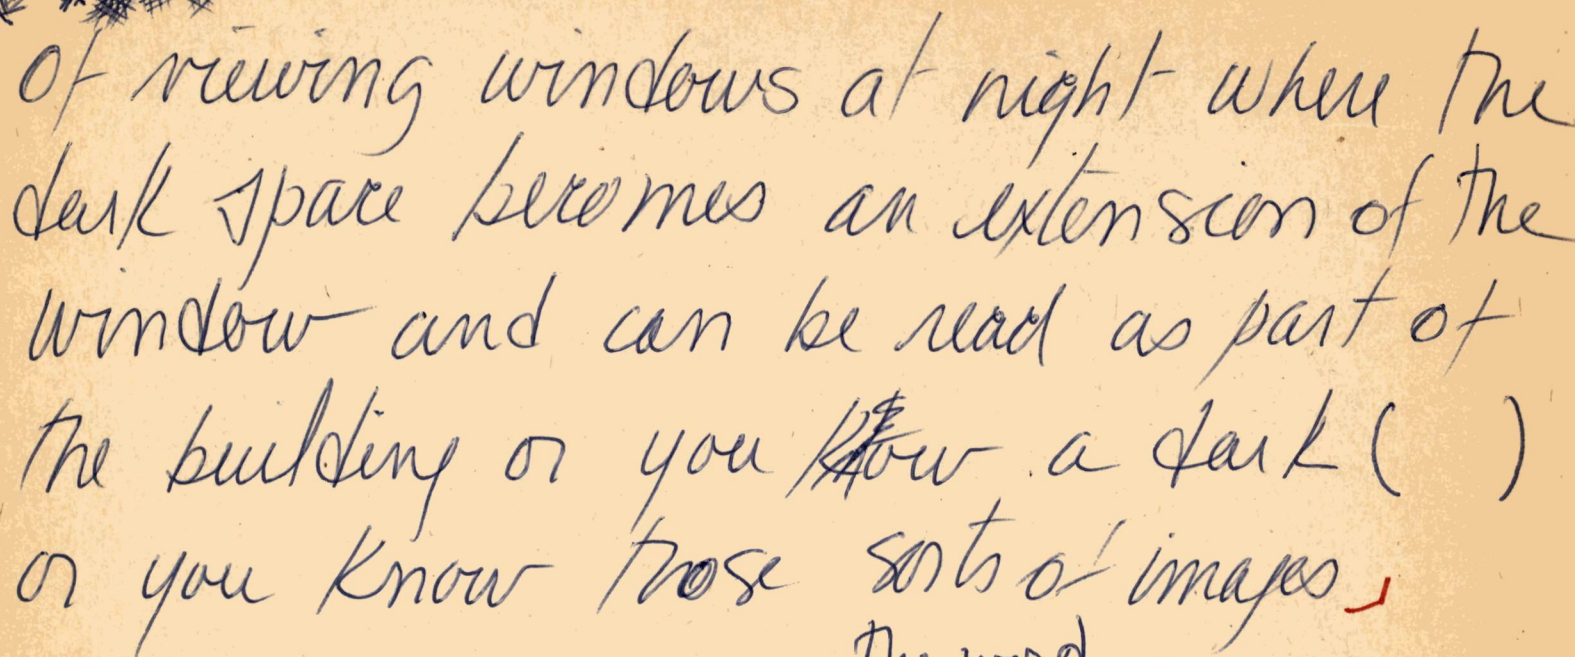 of viewing windows at night where the
dark space becomes an extension of the
window and can be read as part of
the building or you know a dark ( )
or you know those sorts of images
the word